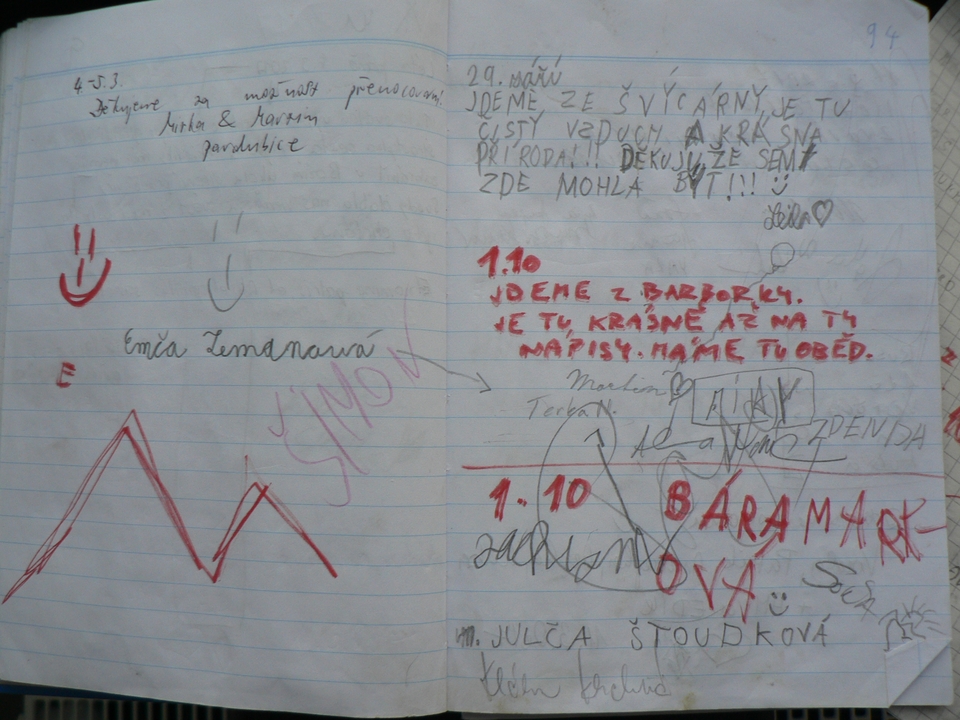 4.-5.3.
Děkujeme za možnost přenocování!
Mirka & Martin
pardubice
Emča Zemanová
E
ŠIMON
94
29. září
JDEME ZE ŠVÝCÁRNY, JE TU
ČISTÝ VZDUCH A KRÁSNÁ
PŘÍRODA!!! DĚKUJU, ŽE SEM
ZDE MOHLA BÝT!!!
1.10
JDEME Z BARBORKY.
JE TU KRÁSNĚ AŽ NA TY
NÁPISY. MÁME TU OBĚD.
Martin
Terka N.
ZDENDA
1.10 BÁRA MARK-
OVÁ
JULČA ŠTOUDKOVÁ